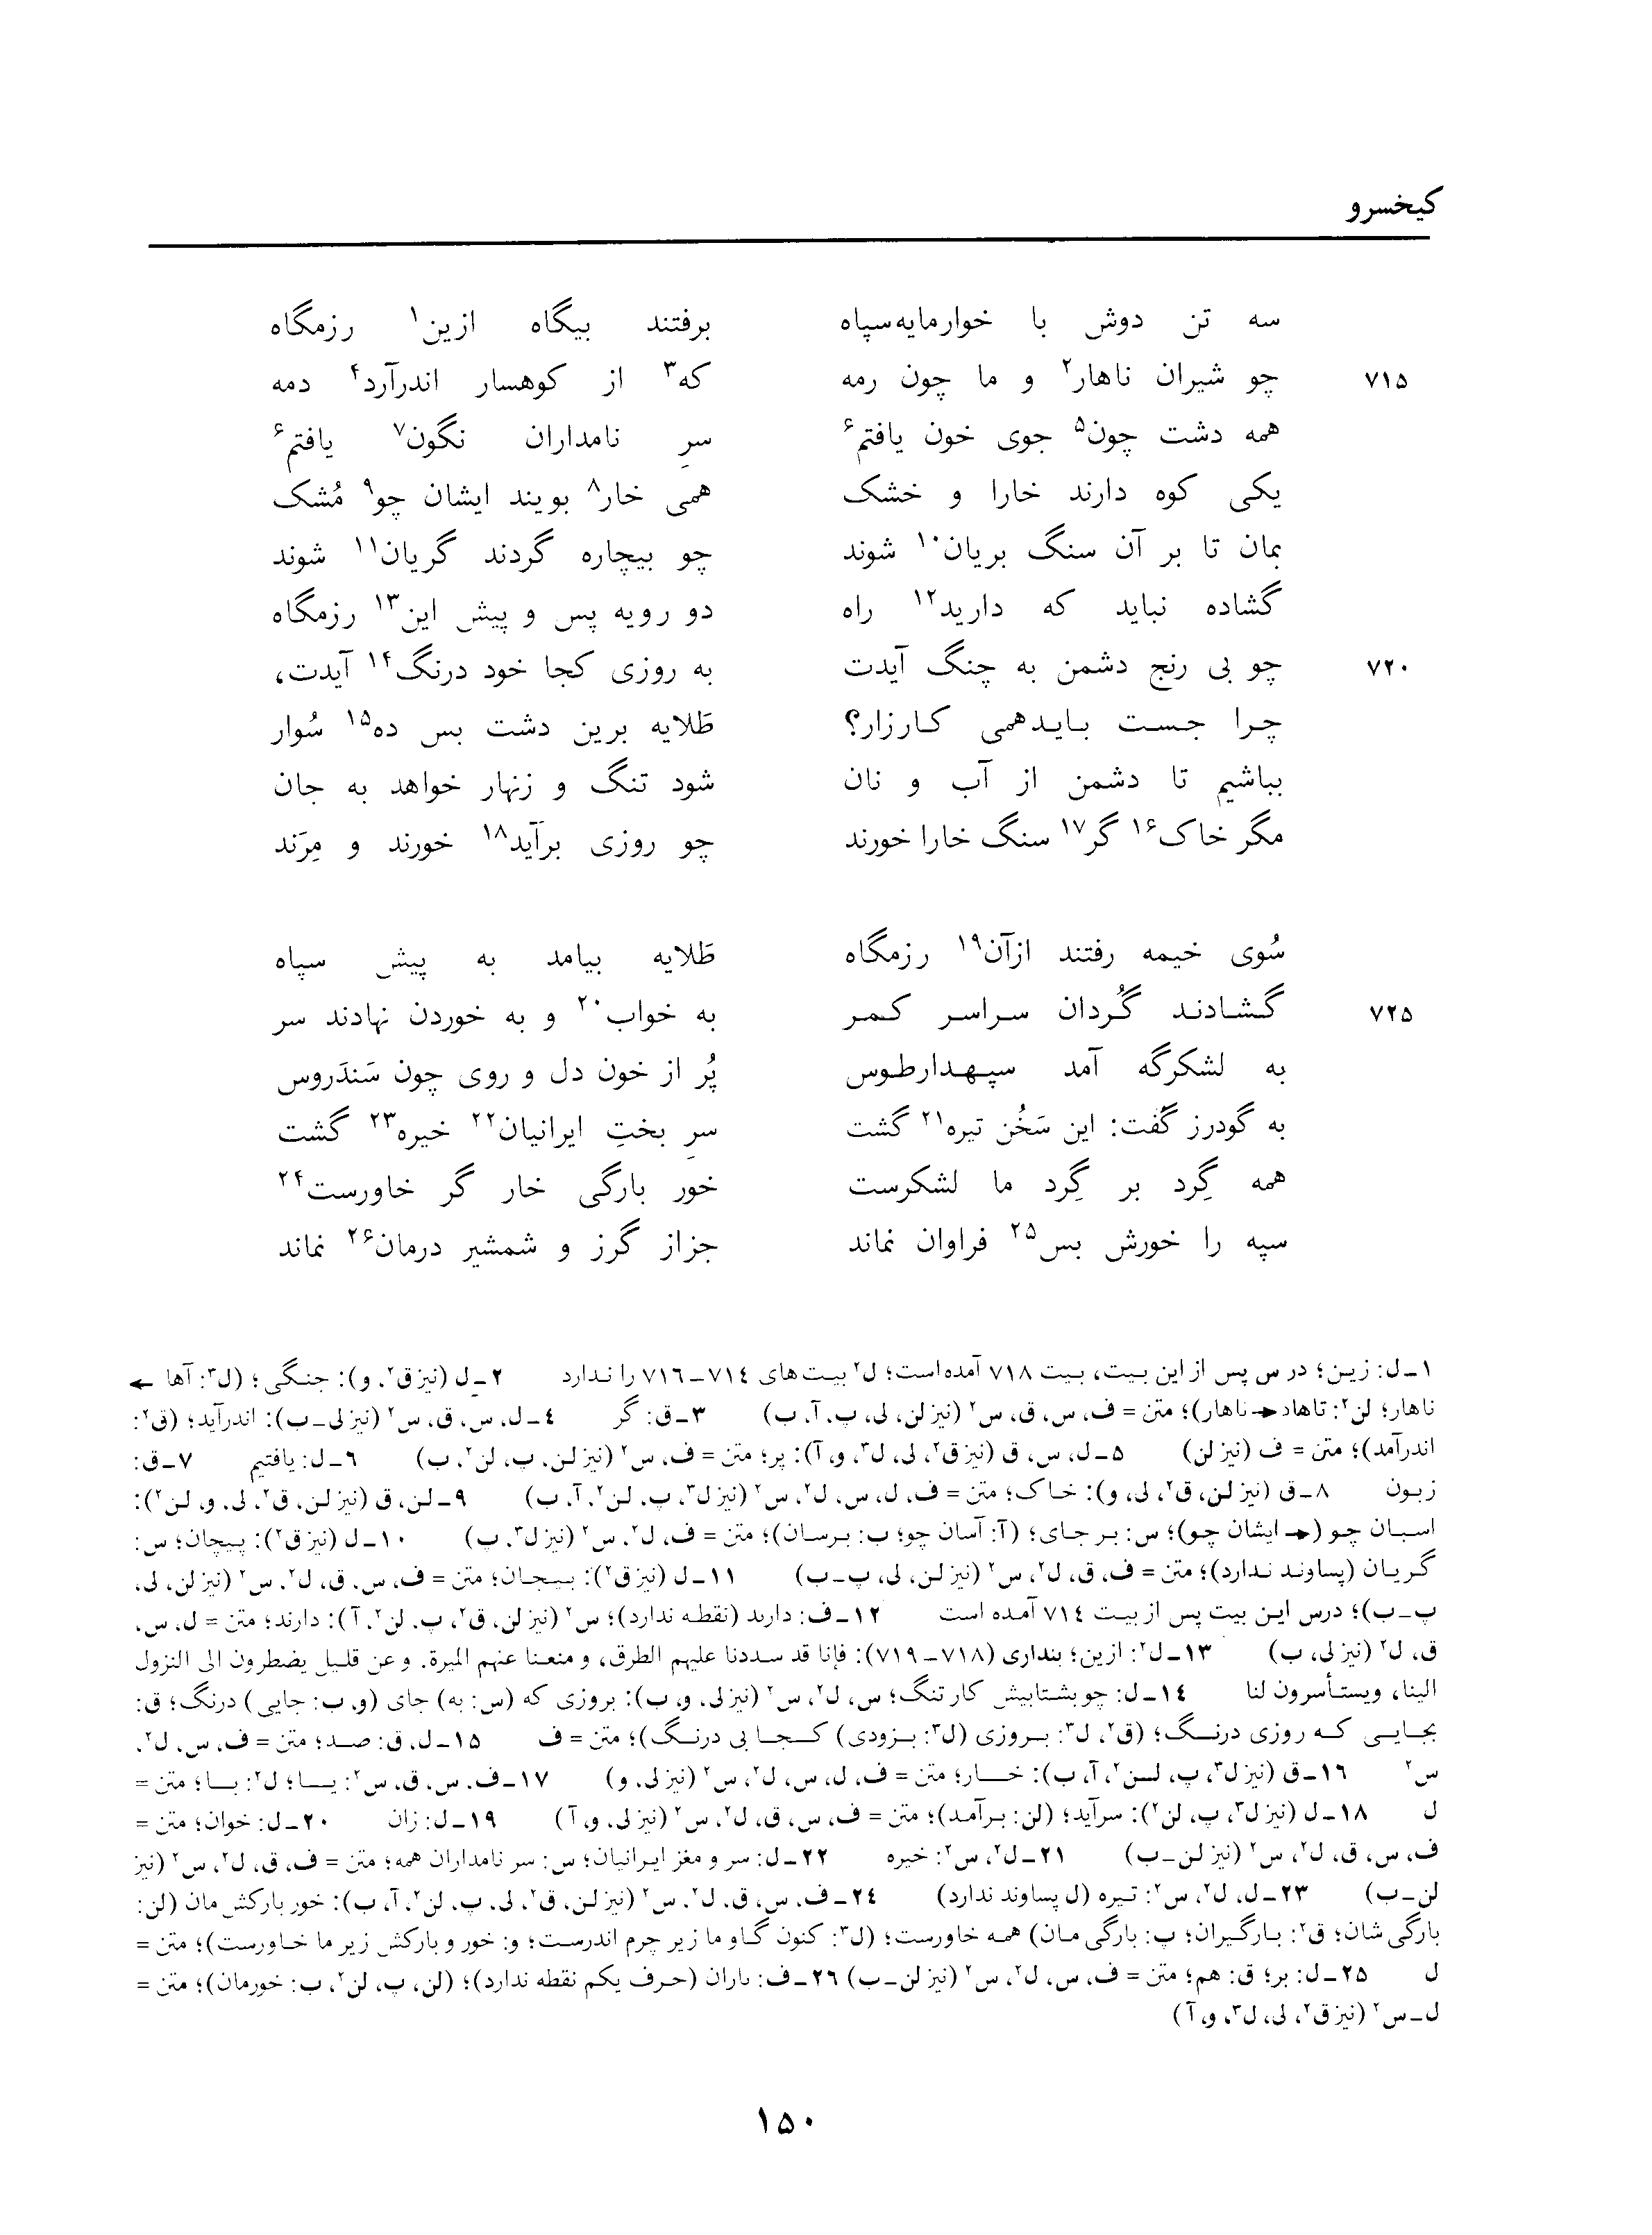 کیخسرو
سه تن دوش با خوارمایه‌سپاه برفتند بیگاه ازین۱ رزمگاه
۷۱۵ چو شیران ناهار۲ و ما چون رمه که۳ از کوهسار اندرآرد۴ دمه
همه دشت چون۵ جوی خون یافتم۶ سرِ نامداران نگون۷ یافتم۶
یکی کوه دارند خارا و خشک همی خار۸ بویند ایشان چو۹ مُشک
بمان تا بر آن سنگ بریان۱۰ شوند چو بیچاره گردند گریان۱۱ شوند
گشاده نباید که دارید۱۲ راه دو رویه پس و پیش این۱۳ رزمگاه
۷۲۰ چو بی رنج دشمن به چنگ آیدت به روزی کجا خود درنگ۱۴ آیدت،
چرا جست باید همی کارزار؟ طَلایه برین دشت بس ده۱۵ سُوار
بباشیم تا دشمن از آب و نان شود تنگ و زنهار خواهد به جان
مگر خاک۱۶ گر۱۷ سنگ خارا خورند چو روزی برآید۱۸ خورند و مِرَند
سُوی خیمه رفتند ازآن۱۹ رزمگاه طَلایه بیامد به پیش سپاه
۷۲۵ گشادند گُردان سراسر کمر به خواب۲۰ و به خوردن نهادند سر
به لشکرگه آمد سپهدارطوس پُر از خون دل و روی چون سَندَروس
به گودرز گفت: این سَخُن تیره۲۱ گشت سرِ بختِ ایرانیان۲۲ خیره۲۳ گشت
همه گِرد بر گِرد ما لشکرست خور بارگی خار گر خاورست۲۴
سپه را خورش بس۲۵ فراوان نماند جزاز گرز و شمشیر درمان۲۶ نماند
۱ـ ل: زین؛ در س پس از این بیت، بیت ۷۱۸ آمده است؛ ل۲ بیت‌های ۷۱۴ـ۷۱۶ را ندارد ۲ـ ل (نیز ق۲، و): جنگی؛ (ل۳: آها ←
ناهار؛ لن۲: تاهاد ← ناهار)؛ متن = ف، س، ق، س۲ (نیز لن، لی، پ، آ، ب) ۳ـ ق: گر ۴ـ ل، س، ق، س۲ (نیز لی ـ ب): اندرآید؛ (ق۲:
اندرآمد)؛ متن = ف (نیز لن) ۵ـ ل، س، ق (نیز ق۲، لی، ل۳، و، آ): پر؛ متن = ف، س۲ (نیز لن، پ، لن۲، ب) ۶ـ ل: یافتیم ۷ـ ق:
زبون ۸ـ ق (نیز لن، ق۲، لی، و): خاک؛ متن = ف، ل، س، ل۲، س۲ (نیز ل۳، پ، لن۲، آ، ب) ۹ـ لن، ق (نیز لن، ق۲، لی، و، لن۲):
اسبان چو (← ایشان چو)؛ س: بر جای؛ (آ: آسان چو؛ ب: برسان)؛ متن = ف، ل۲، س۲ (نیز ل۳، پ) ۱۰ـ ل (نیز ق۲): پیچان؛ س:
گریان (پساوند ندارد)؛ متن = ف، ق، ل۲، س۲ (نیز لن، لی، پ ـ ب) ۱۱ـ ل (نیز ق۲): بیجان؛ متن = ف، س، ق، ل۲، س۲ (نیز لن، لی،
پ ـ ب)؛ درس این بیت پس از بیت ۷۱۴ آمده است ۱۲ـ ف: دارید (نقطه ندارد)؛ س۲ (نیز لن، ق۲، پ، لن۲، آ): دارند؛ متن = ل، س،
ق، ل۲ (نیز لی، ب) ۱۳ـ ل۲: ازین؛ بنداری (۷۱۸ـ۷۱۹): فإنا قد سددنا علیهم الطرق، و منعنا عنهم المیرة. و عن قلیل یضطرون الی النزول
الینا، ویستأسرون لنا ۱۴ـ ل: چو بشتابیش کار تنگ؛ س، ل۲، س۲ (نیز لی، و، ب): بروزی که (س: به) جای (و، ب: جایی) درنگ؛ ق:
بجایی که روزی درنگ؛ (ق۲، ل۳: بروزی (ل۳: بزودی) کجا بی درنگ)؛ متن = ف ۱۵ـ ل، ق: صد؛ متن = ف، س، ل۲،
س۲ ۱۶ـ ق (نیز ل۳، پ، لن۲، آ، ب): خار؛ متن = ف، ل، س، ل۲، س۲ (نیز لی، و) ۱۷ـ ف، س، ق، س۲: یا؛ ل۲: با؛ متن =
ل ۱۸ـ ل (نیز ل۳، پ، لن۲): سرآید؛ (لن: برآمد)؛ متن = ف، س، ق، ل۲، س۲ (نیز لی، و، آ) ۱۹ـ ل: زان ۲۰ـ ل: خوان؛ متن =
ف، س، ق، ل۲، س۲ (نیز لن ـ ب) ۲۱ـ ل۲، س۲: خیره ۲۲ـ ل: سر و مغز ایرانیان؛ س: سر نامداران همه؛ متن = ف، ق، ل۲، س۲ (نیز
لن ـ ب) ۲۳ـ ل، ل۲، س۲: تیره (ل پساوند ندارد) ۲۴ـ ف، س، ق، ل۲، س۲ (نیز لن، ق۲، لی، پ، لن۲، آ، ب): خور بارکش مان (لن:
بارگی شان؛ ق۲: بارگیران؛ پ: بارگی مان) همه خاورست؛ (ل۳: کنون گاو ما زیر چرم اندرست؛ و: خور و بارکش زیر ما خاورست)؛ متن =
ل ۲۵ـ ل: بر؛ ق: هم؛ متن = ف، س، ل۲، س۲ (نیز لن ـ ب) ۲۶ـ ف: ٮاران (حرف یکم نقطه ندارد)؛ (لن، پ، لن۲، ب: خورمان)؛ متن =
ل ـ س۲ (نیز ق۲، لی، ل۳، و، آ)
۱۵۰